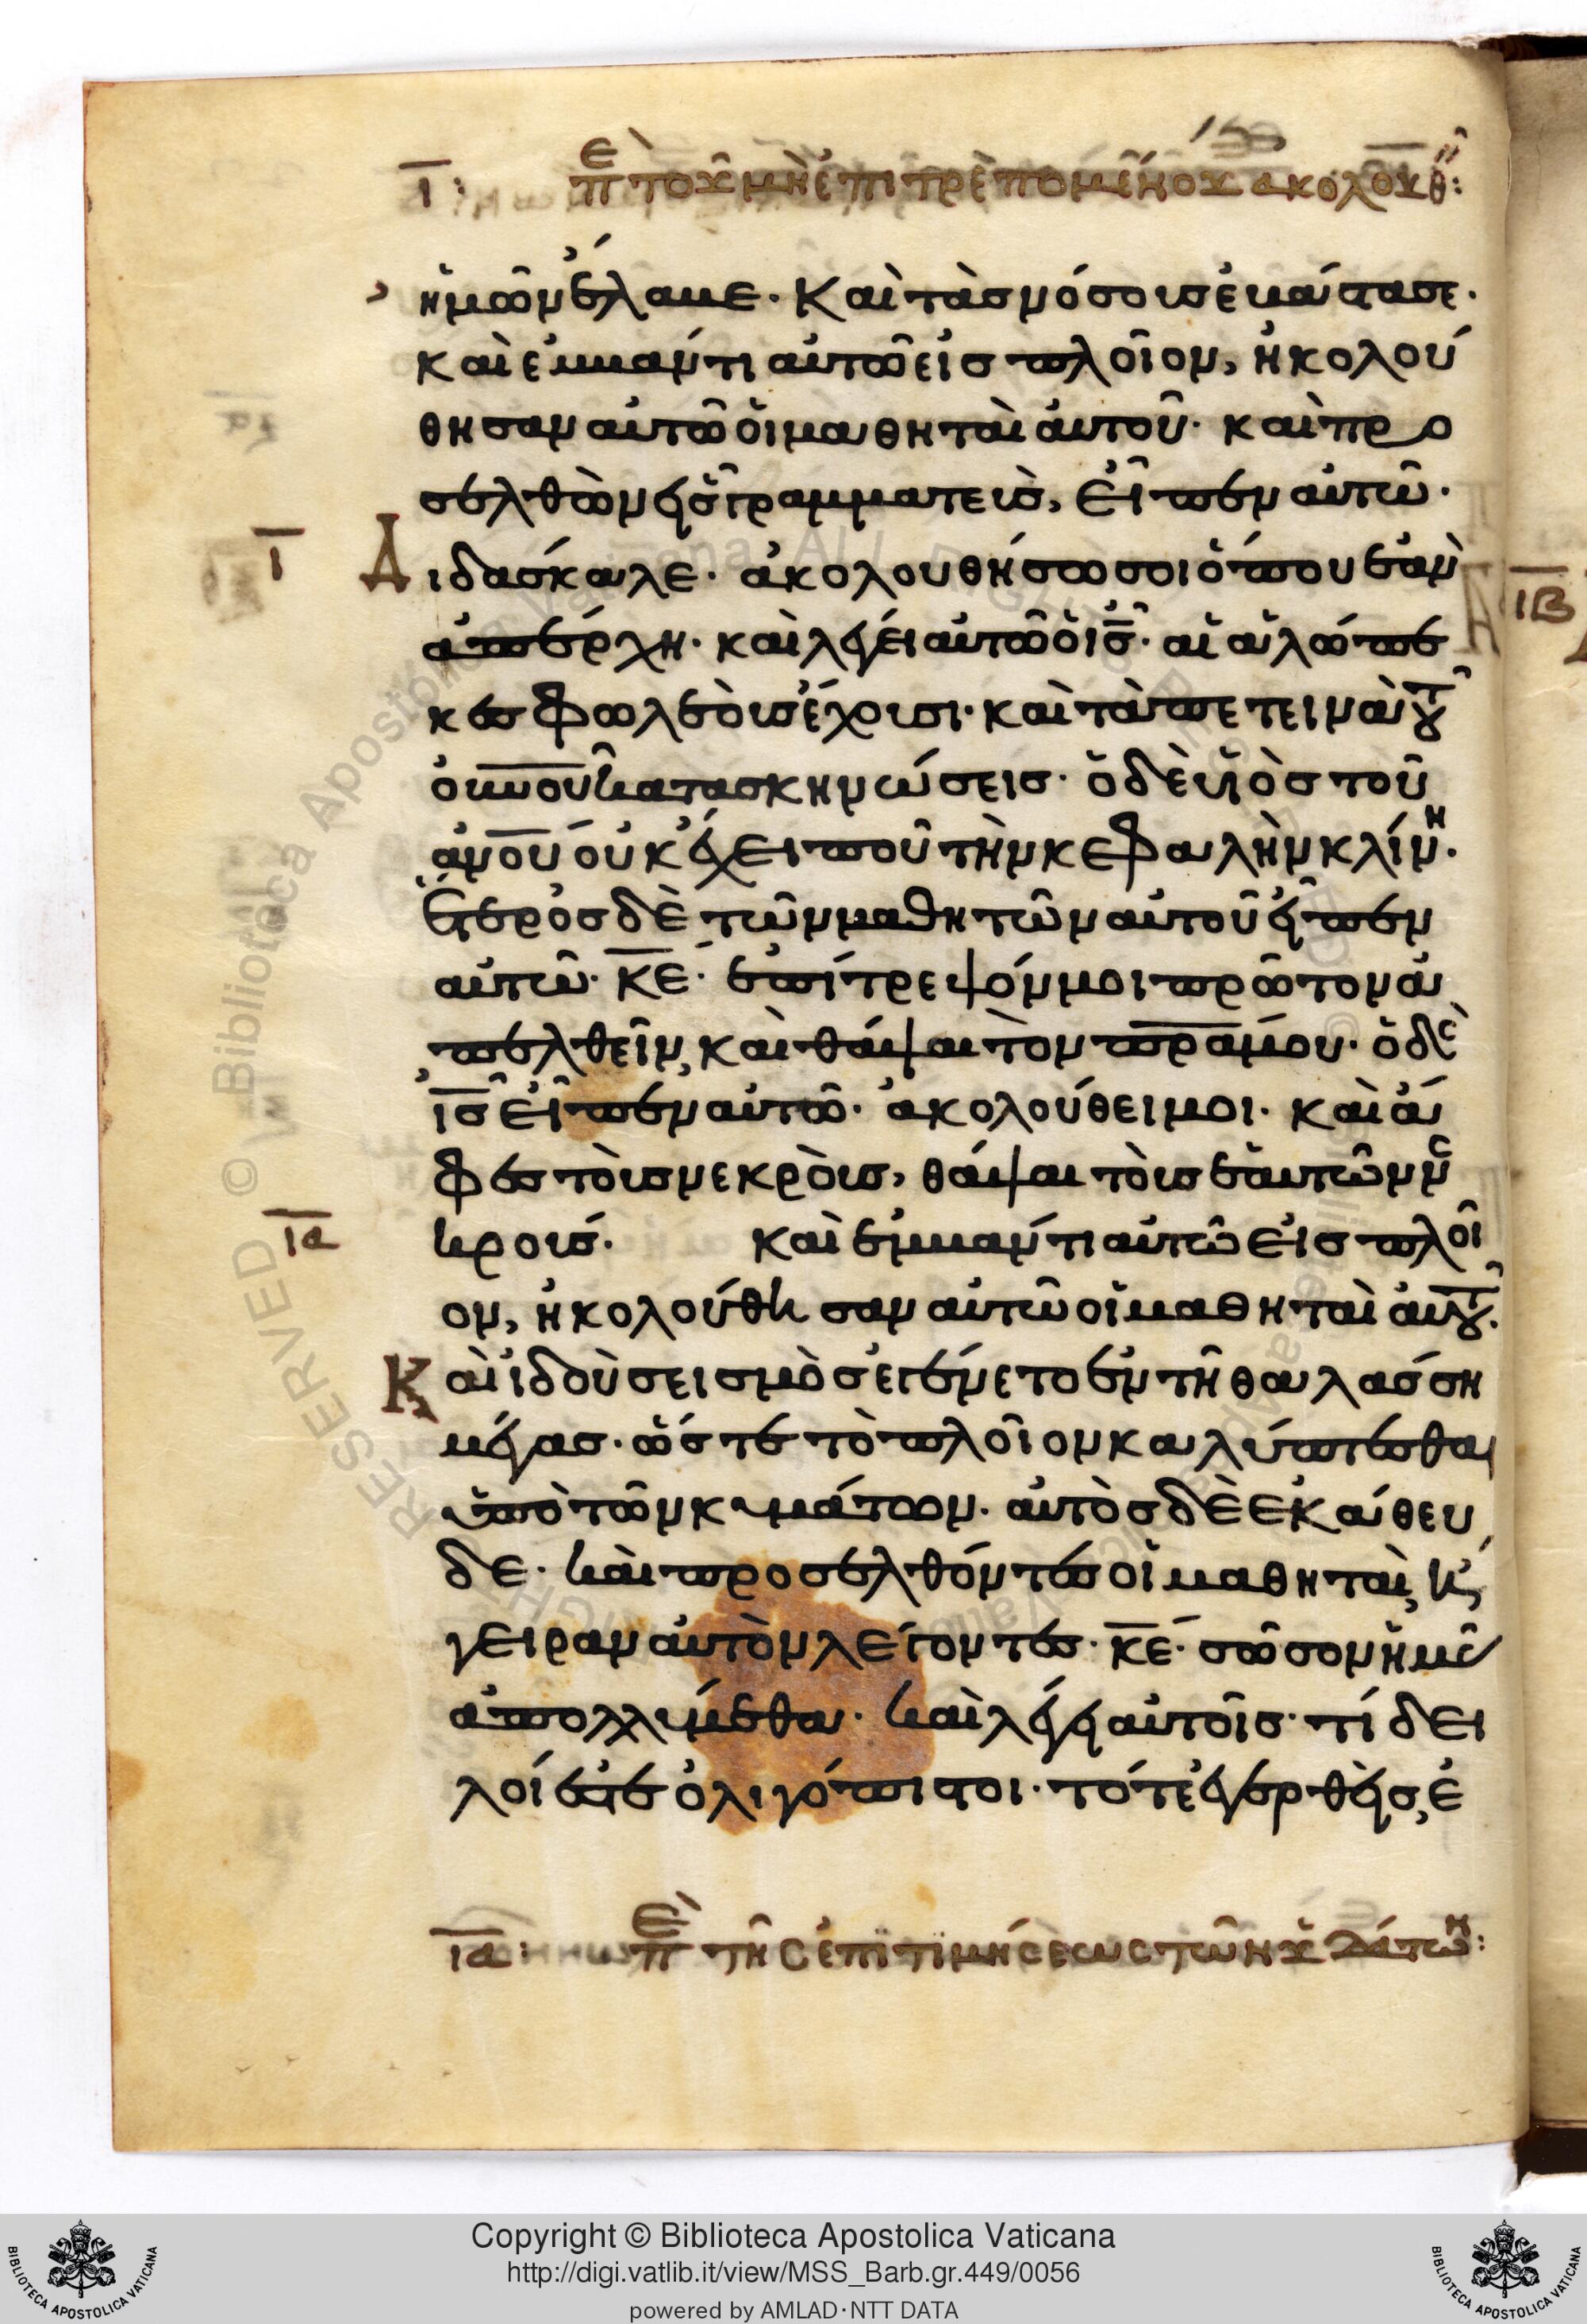 ι: πε τοῦ μὴ ἐπιτρεπομένου ἀκολουθ:
ἡμῶν ἔλαβε. Καὶ τὰς νόσους ἐβάστασε.
καὶ ἐμβάντι αὐτῶ εἰς πλοῖον, ἠκολού
θησαν αὐτῶ οἱ μαθηταὶ αὐτοῦ. καὶ προ
σελθὼν εἷς γραμματεὺς, εἶπεν αὐτῶ.
ι Διδάσκαλε. ἀκολουθήσω σοι ὅπου ἐὰν
ἀπέρχη. καὶ λέγει αὐτῶ ὁ ις. αἱ ἀλώπε
κες φωλεοὺς ἔχουσι. καὶ τὰ πετεινὰ τ
οὐνου κατασκηνώσεις. ὁ δὲ υἱὸς τοῦ
ανου οὐκ ἔχει ποῦ τὴν κεφαλὴν κλίνη.
ἕτερος δὲ τῶν μαθητῶν αὐτοῦ εἶπεν
αὐτῶ. κε. ἐπίτρεψόν μοι πρῶτον ἀ
πελθεῖν, καὶ θάψαι τὸν πρα μου. ὁ δὲ
ις εἶπεν αὐτῶ. ἀκολούθει μοι. καὶ ἄ
φες τοὺς νεκροὺς, θάψαι τοὺς ἑαυτῶν νε
κρούς. ια καὶ ἐμβάντι αὐτῶ εἰς πλοῖ
ον, ἠκολούθησαν αὐτῶ οἱ μαθηταὶ αὐτοῦ.
Καὶ ἰδοὺ σεισμὸς ἐγένετο ἐν τῆ θαλάσση
μέγας. ὥστε τὸ πλοῖον καλύπτεσθαι
ὑπὸ τῶν κυμάτων. αὐτὸς δὲ ἐκάθευ
δε. καὶ προσελθόντες οἱ μαθηταὶ, ἤ
γειραν αὐτὸν λέγοντες. κε. σῶσον ἡμᾶς
ἀπολλύμεθα. καὶ λέγει αὐτοῖς. τί δει
λοί ἐστε ὀλιγόπιστοι. τότε ἐγερθεὶς, ἐ
ια: πε τῆς ἐπιτιμήσεως τῶν ὑδάτων:
Copyright © Biblioteca Apostolica Vaticana
http://digi.vatlib.it/view/MSS_Barb.gr.449/0056
powered by AMLAD·NTT DATA